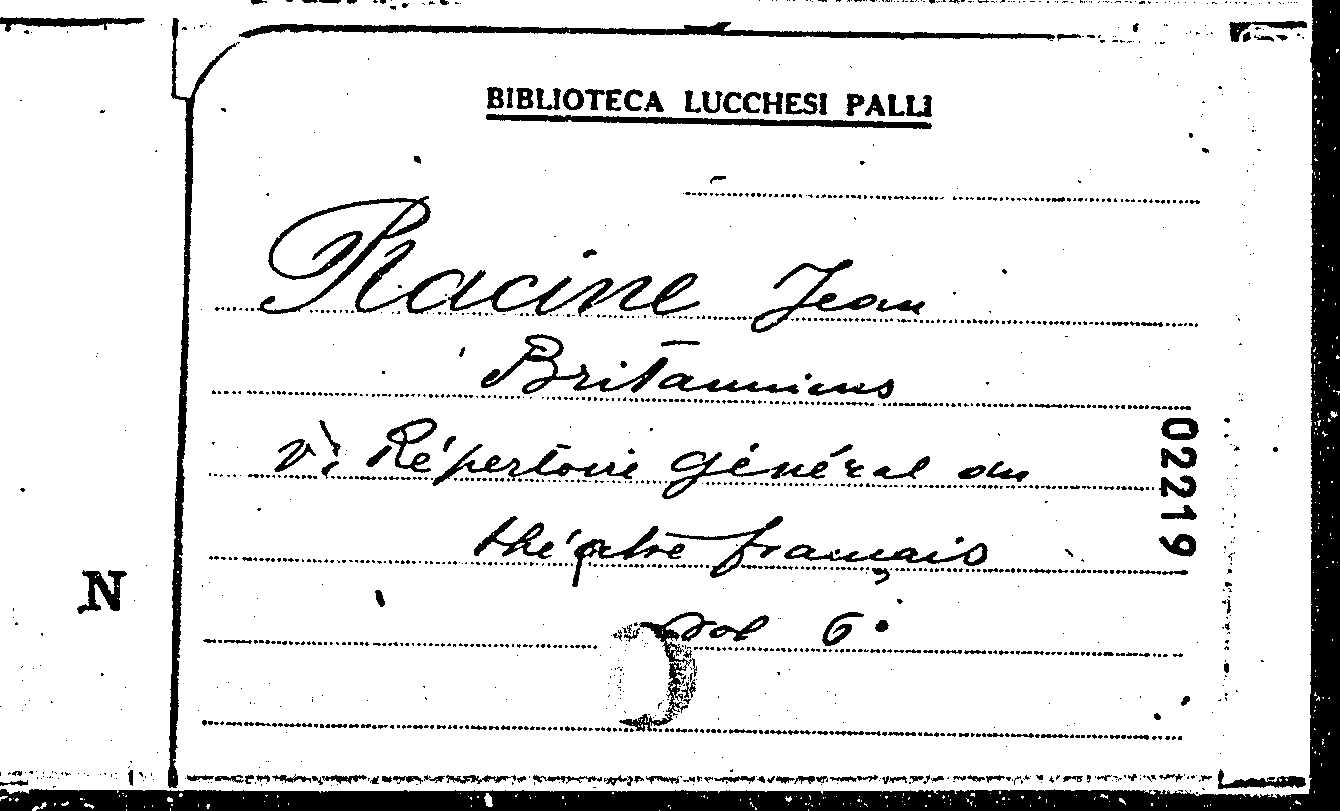 BIBLIOTECA LUCCHESI PALLI
Racine Jean
Britannicus
v: Répertoire général du
théâtre français
vol 6°
02219
N